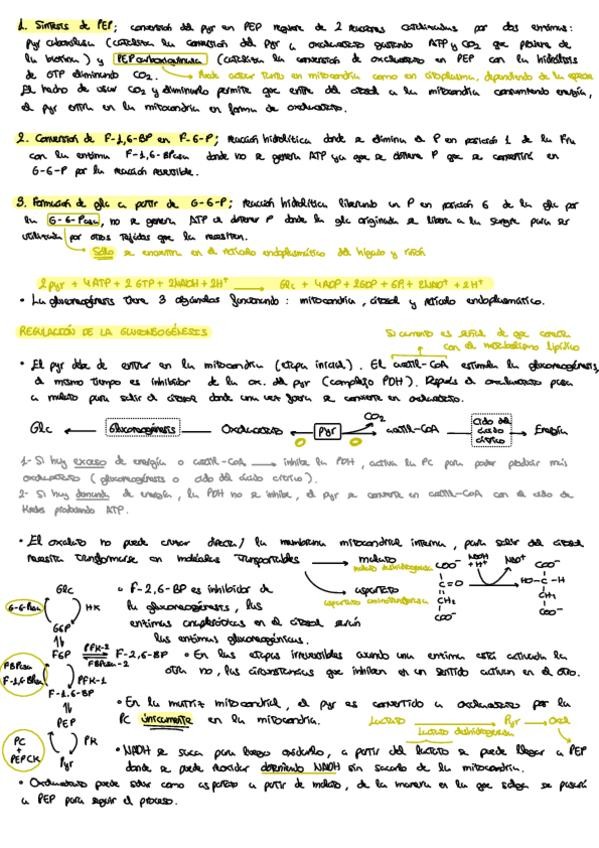 1. Síntesis de PEP; conversión del pyr en PEP requiere de 2 reacciones catalizadas por dos enzimas:
pyr carboxilasa (cataliza la conversión del pyr a oxalacetato gastando ATP y CO2 que proviene de
la biotina) y PEP carboxiquinasa (cataliza la conversión de oxalacetato en PEP con la hidrólisis
de GTP eliminando CO2. → Puede ocurrir tanto en mitocondria como en citoplasma, dependiendo de la especie
El hecho de usar CO2 y eliminarlo permite que entre del citosol a la mitocondria consumiendo energía,
el pyr entra en la mitocondria en forma de oxalacetato.
2. Conversión de F-1,6-BP en F-6-P; reacción hidrolítica donde se elimina el P en posición 1 de la Fru
con la enzima F-1,6-BPasa donde no se genera ATP ya que se obtiene P que se convertirá en
G-6-P por la reacción reversible.
3. Formación de glc a partir de G-6-P; reacción hidrolítica liberando un P en posición 6 de la glc por
la G-6-Pasa, no se genera ATP al obtener P donde la glc originada se libera a la sangre para ser
utilizada por otros tejidos que la necesiten.
Sólo se encuentra en el retículo endoplasmático del hígado y riñón
2pyr + 4ATP + 2GTP + 2NADH + 2H+ → Glc + 4ADP + 2GDP + 6Pi + 2NAD+ + 2H+
• La gluconeogénesis tiene 3 orgánulos funcionando: mitocondria, citosol y retículo endoplasmático.
REGULACIÓN DE LA GLUCONEOGÉNESIS
Si aumenta es señal de que
con el metabolismo lipídico
• El pyr debe de entrar en la mitocondria (etapa inicial). El acetil-CoA estimula la gluconeogénesis,
al mismo tiempo es inhibidor de la ox. del pyr (complejo PDH). Después el oxalacetato pasa
a malato para salir al citosol donde una vez fuera se convierte en oxalacetato.
Glc ← Gluconeogénesis ← Oxalacetato ← Pyr → acetil-CoA → Ciclo del ácido cítrico → Energía
CO2
1- Si hay exceso de energía o acetil-CoA → inhibe la PDH, activa la PC para poder producir más
oxalacetato (gluconeogénesis o ciclo del ácido cítrico).
2- Si hay demanda de energía, la PDH no se inhibe, el pyr se convierte en acetil-CoA con el ciclo de
Krebs produciendo ATP.
• El oxalato no puede cruzar directa/ la membrana mitocondrial interna, para salir del citosol
necesita transformarse en moléculas transportables → malato
malato deshidrogenasa
→ aspartato
aspartato aminotransferasa
COO-
C=O
CH2
COO-
NADH + H+
NAD+
COO-
HO-C-H
CH2
COO-
Glc
G-6-Pasa
HK
G6P
F6P
PFK-2
FBPasa-2
F-2,6-BP
FBPasa
F-1,6-BPasa
PFK-1
F-1,6-BP
PEP
PC
+
PEPCK
PK
Pyr
• F-2,6-BP es inhibidor de
la gluconeogénesis, las
enzimas en el citosol serán
las enzimas gluconeogénicas.
• En las etapas irreversibles cuando una enzima está activada la
otra no, las circunstancias que inhiben en un sentido activan en el otro.
• En la matriz mitocondrial, el pyr es convertido a oxalacetato por la
PC únicamente en la mitocondria.
Lactato → Pyr → Oxal
Lactato deshidrogenasa
• NADH se saca para luego oxidarlo, a partir del lactato se puede llegar a PEP
donde se puede reoxidar obteniendo NADH sin sacarlo de la mitocondria.
• Oxalacetato puede salir como aspartato a partir de malato, de la manera en la que salga se pasará
a PEP para seguir el proceso.